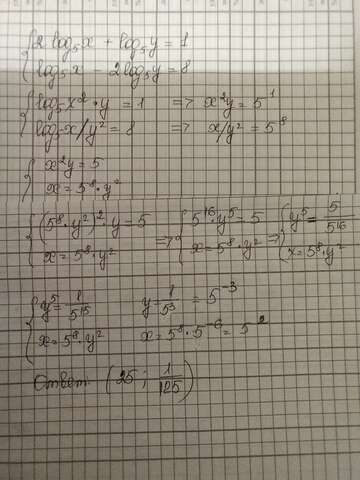 2 log₅x + log₅y = 1
log₅x − 2log₅y = 8
log₅x²·y = 1 => x²y = 5¹
log₅x/y² = 8 => x/y² = 5⁸
x²y = 5
x = 5⁸·y²
(5⁸·y²)²·y = 5 => 5¹⁶y⁵ = 5 => y⁵ = 5/5¹⁶
x = 5⁸·y² x = 5⁸·y² x = 5⁸·y²
y⁵ = 1/5¹⁵ y = 1/5³ = 5⁻³
x = 5⁸·y² x = 5⁸·5⁻⁶ = 5²
Ответ: (25; 1/125)